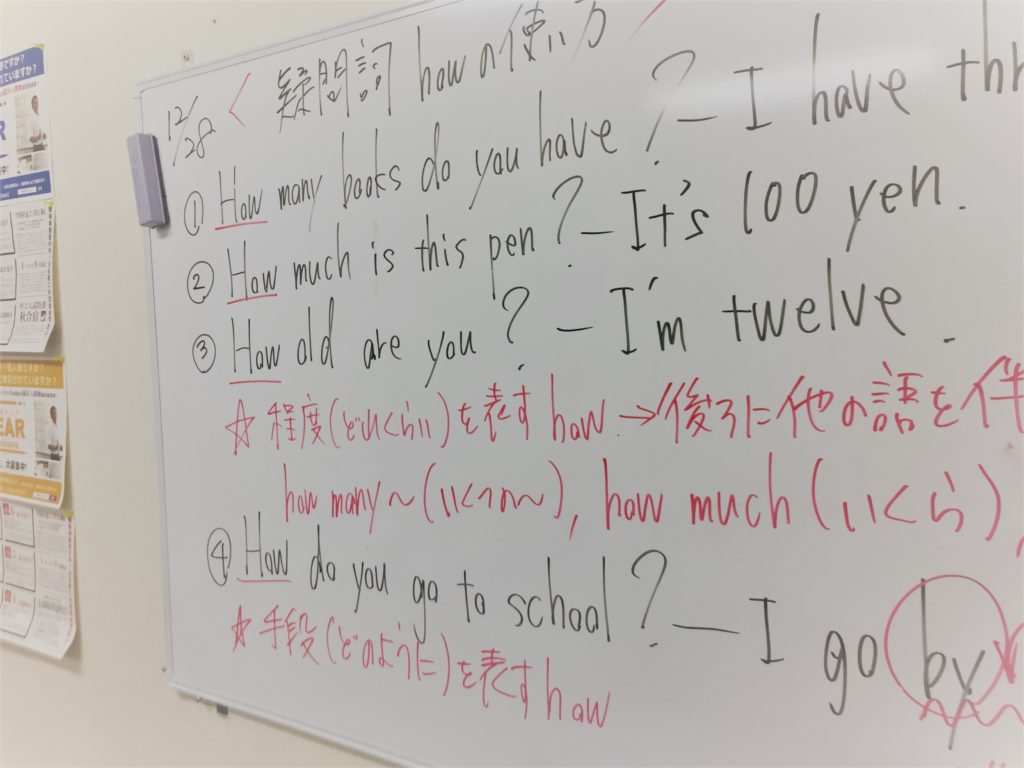 12/28 < 疑問詞 howの使い方
① How many books do you have? - I have thr
② How much is this pen? - It's 100 yen.
③ How old are you? - I'm twelve.
☆ 程度(どれくらい)を表す how. → 後ろに他の語を伴
how many~(いくつの~), how much(いくら)
④ How do you go to school? - I go by
☆ 手段(どのように)を表す how
ですか?
ていますか?
秋合宿
ですか?
されていますか?
EAR
大募集中!